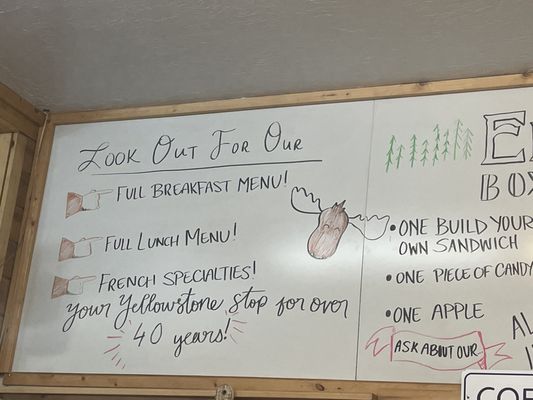 Look Out For Our
Full Breakfast Menu!
Full Lunch Menu!
French Specialties!
Your Yellowstone Stop for over
40 years!
BOX
• ONE BUILD YOUR
OWN SANDWICH
• ONE PIECE OF CANDY
• ONE APPLE
ASK ABOUT OUR